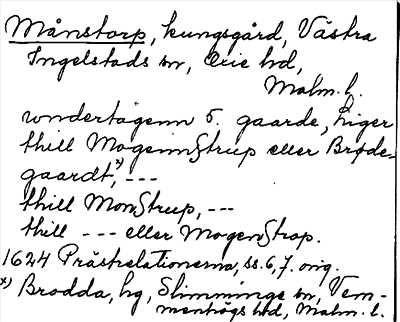 Månstorp, kungsgård, Västra
Ingelstads sn, Oxie hd,
Malm. l.
vondertagenn 5. gaarde, liger
thill MogennStrup eller Brøde-
gaardt,*) ---
thill MonStrup, ---
thill --- eller MogenStrop.
1624 Prästrelationerna, ss. 6, 7. orig.
*) Brodda, hg, Slimminge sn, Vem-
menhögs hd, Malm. l.